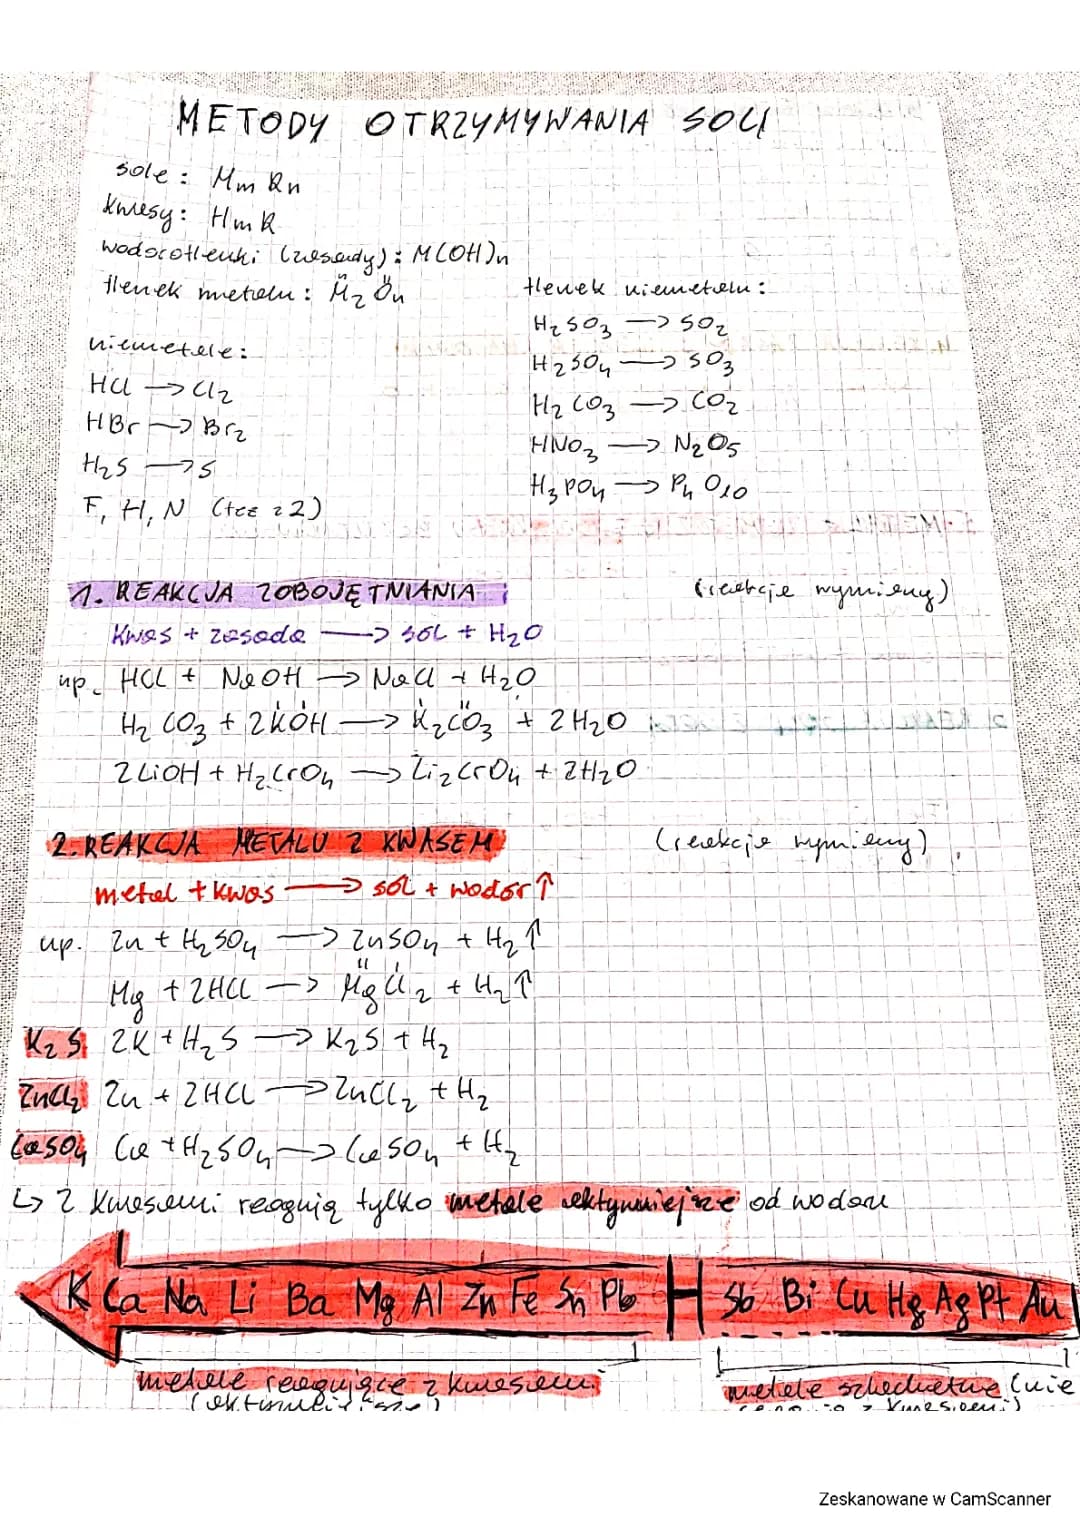 METODY OTRZYMYWANIA SOLI
sole: Mm Rn
kwasy: HmR
wodorotlenki (zasady): M(OH)n
tlenek metalu: M₂On
niemetale:
HCl → Cl₂
HBr → Br₂
H₂S → S
F, H, N
tlenek niemetalu:
H₂SO₃ → SO₂
H₂SO₄ → SO₃
H₂CO₃ → CO₂
HNO₃ → N₂O₅
H₃PO₄ → P₄O₁₀
1. REAKCJA ZOBOJĘTNIANIA (reakcje wymiany)
kwas + zasada → sól + H₂O
np. HCl + NaOH → NaCl + H₂O
H₂CO₃ + 2KOH → K₂CO₃ + 2H₂O
2LiOH + H₂CrO₄ → Li₂CrO₄ + 2H₂O
2. REAKCJA METALU Z KWASEM (reakcje wymiany)
metal + kwas → sól + wodór↑
np. Zn + H₂SO₄ → ZnSO₄ + H₂↑
Mg + 2HCl → MgCl₂ + H₂↑
K₂S 2K + H₂S → K₂S + H₂
ZnCl₂ Zn + 2HCl → ZnCl₂ + H₂
CaSO₄ Ca + H₂SO₄ → CaSO₄ + H₂
↳ z kwasami reagują tylko metale aktywniejsze od wodoru
K Ca Na Li Ba Mg Al Zn Fe Sn Pb H Sb Bi Cu Hg Ag Pt Au
metale reagujące z kwasami metale szlachetne (nie
Zeskanowane w CamScanner